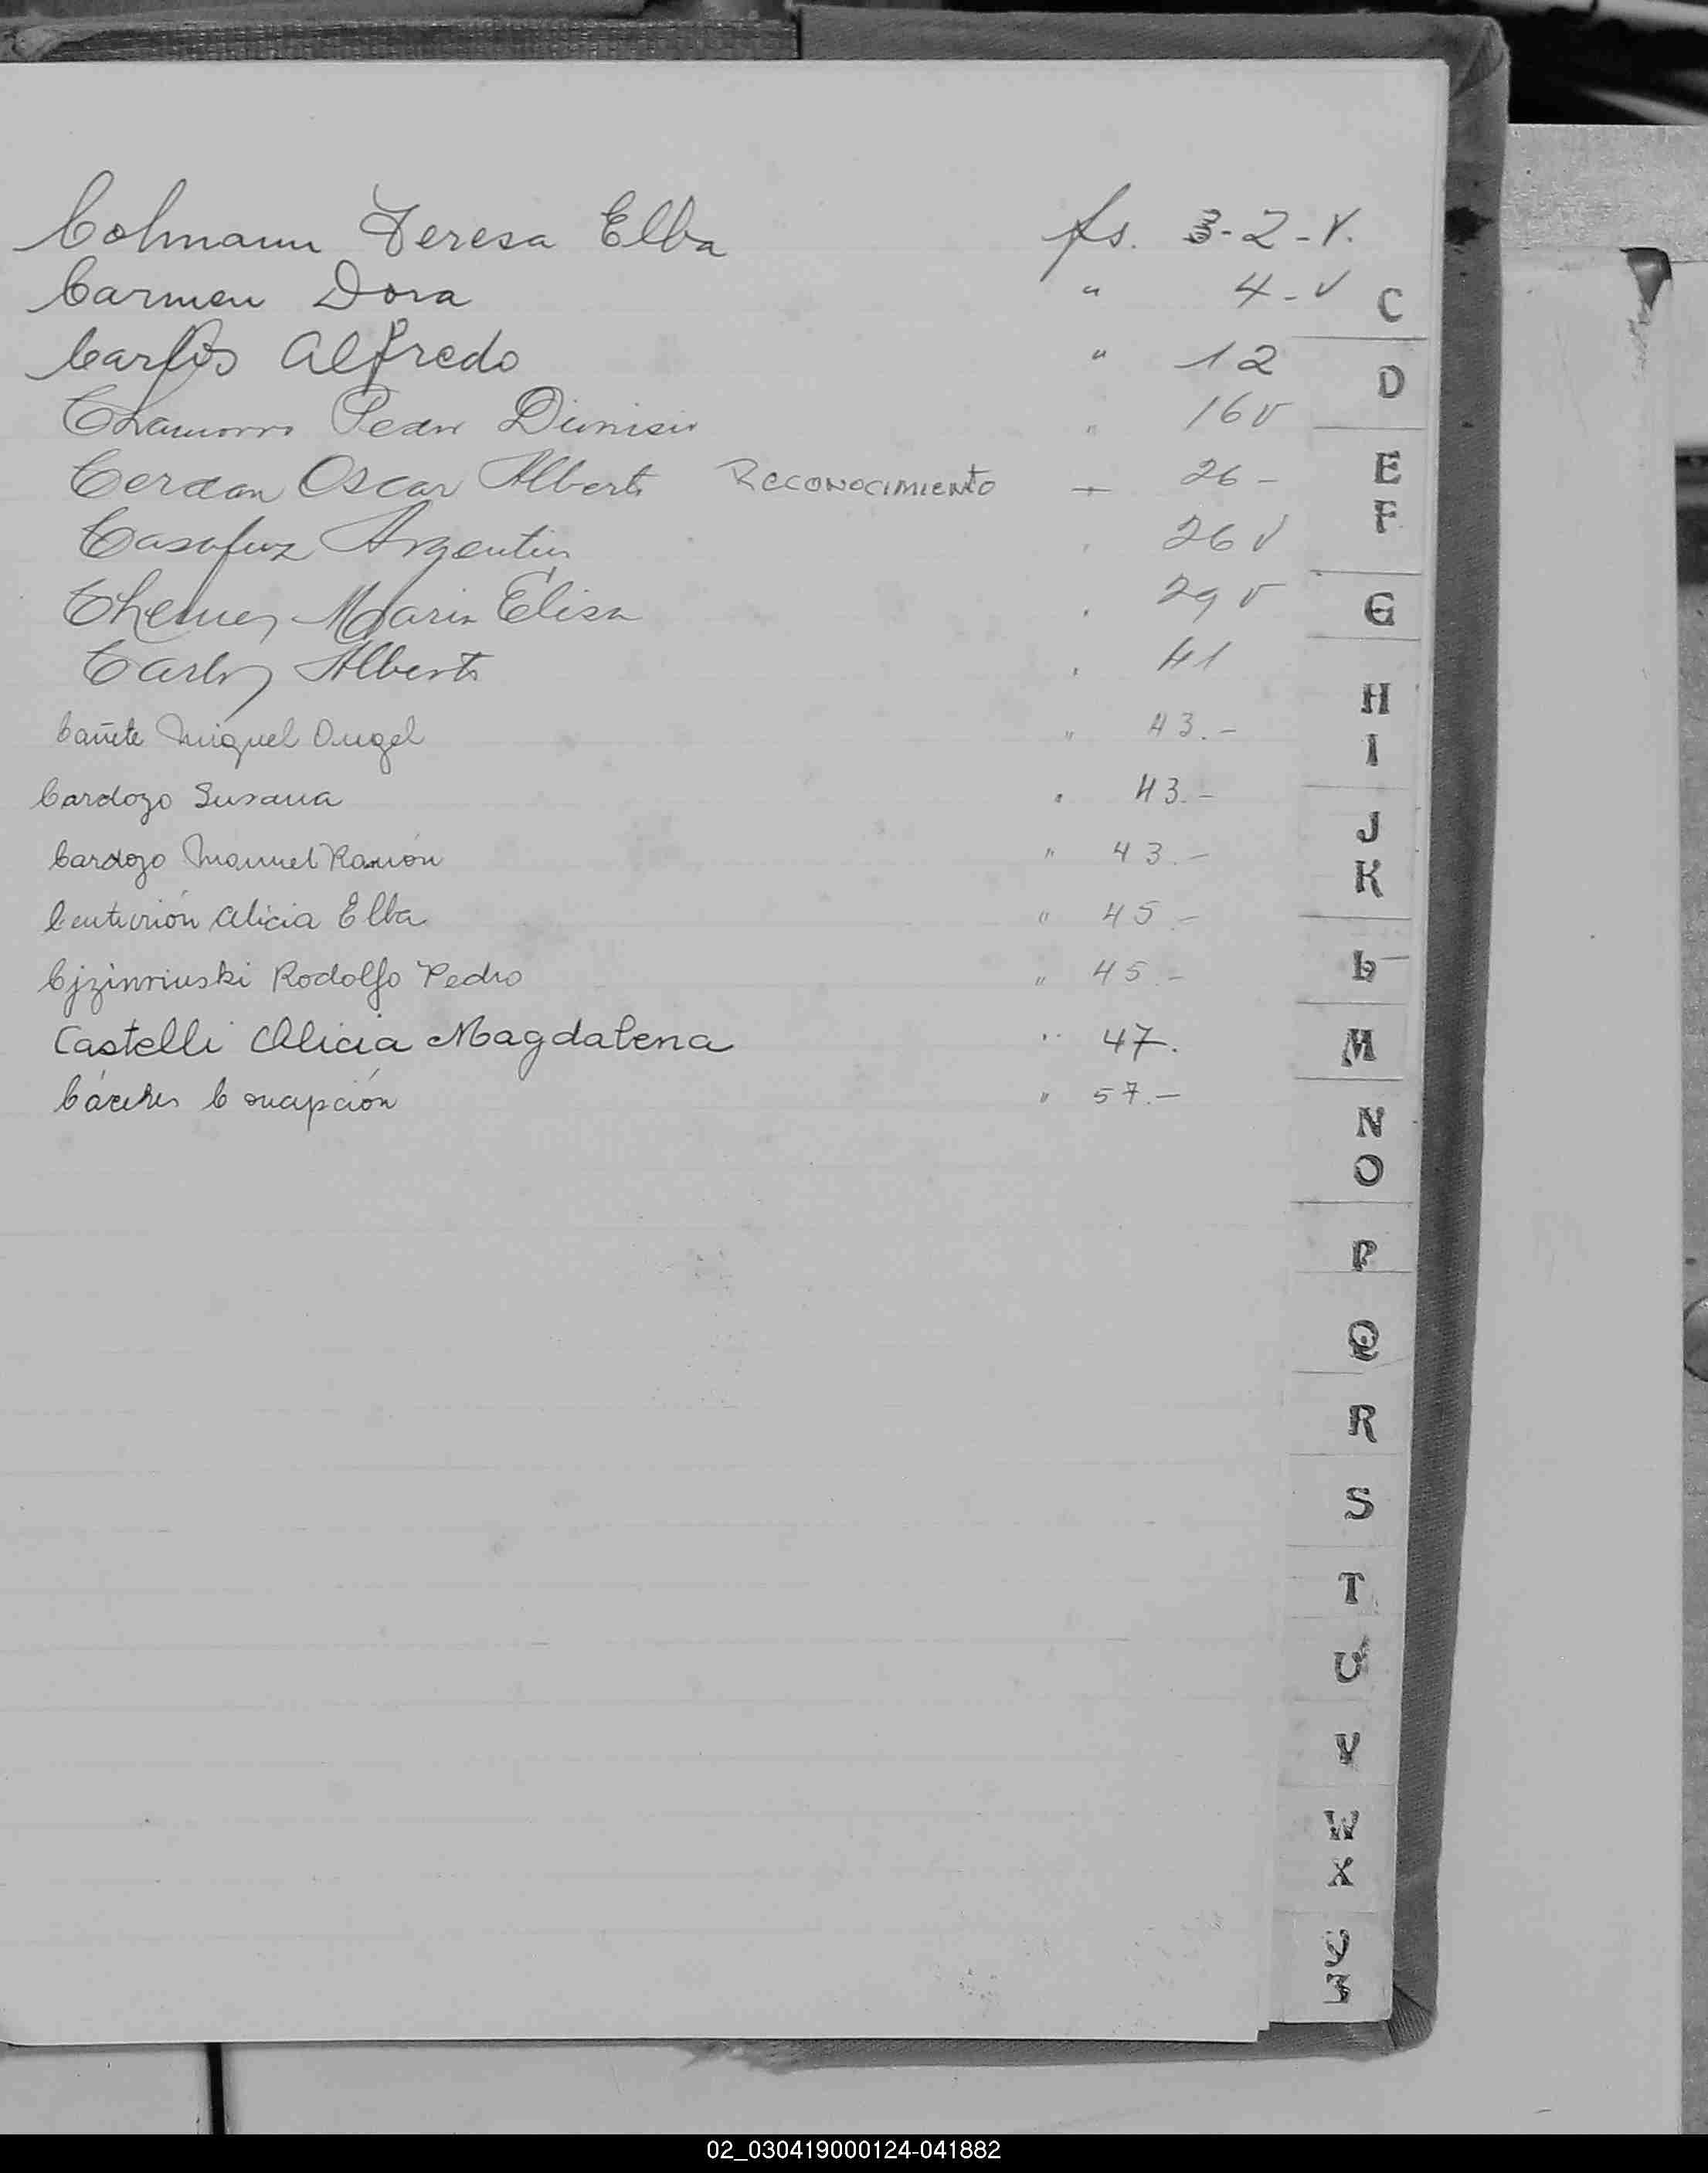 Colmann Teresa Elba fs. 3-2-V.
Carmen Dora " 4-V
Carlos Alfredo " 12
Chamorro Pedro Dionisio " 16 v
Cerdan Oscar Alberto RECONOCIMIENTO 26 -
Casafuz Argentin 26 V
Maria Elisa 29 v
Carlos Alberto 41
Cañete Miguel Angel " 43.-
Cardozo Susana " 43.-
Cardozo Manuel Ramón " 43.-
Centurión Alicia Elba " 45.-
Rodolfo Pedro " 45.-
Castelli Alicia Magdalena " 47.
Cáceres Concepción " 57.-
C
D
E
F
G
H
I
J
K
L
M
N
O
P
Q
R
S
T
U
V
W
X
Y
Z
02_030419000124-041882